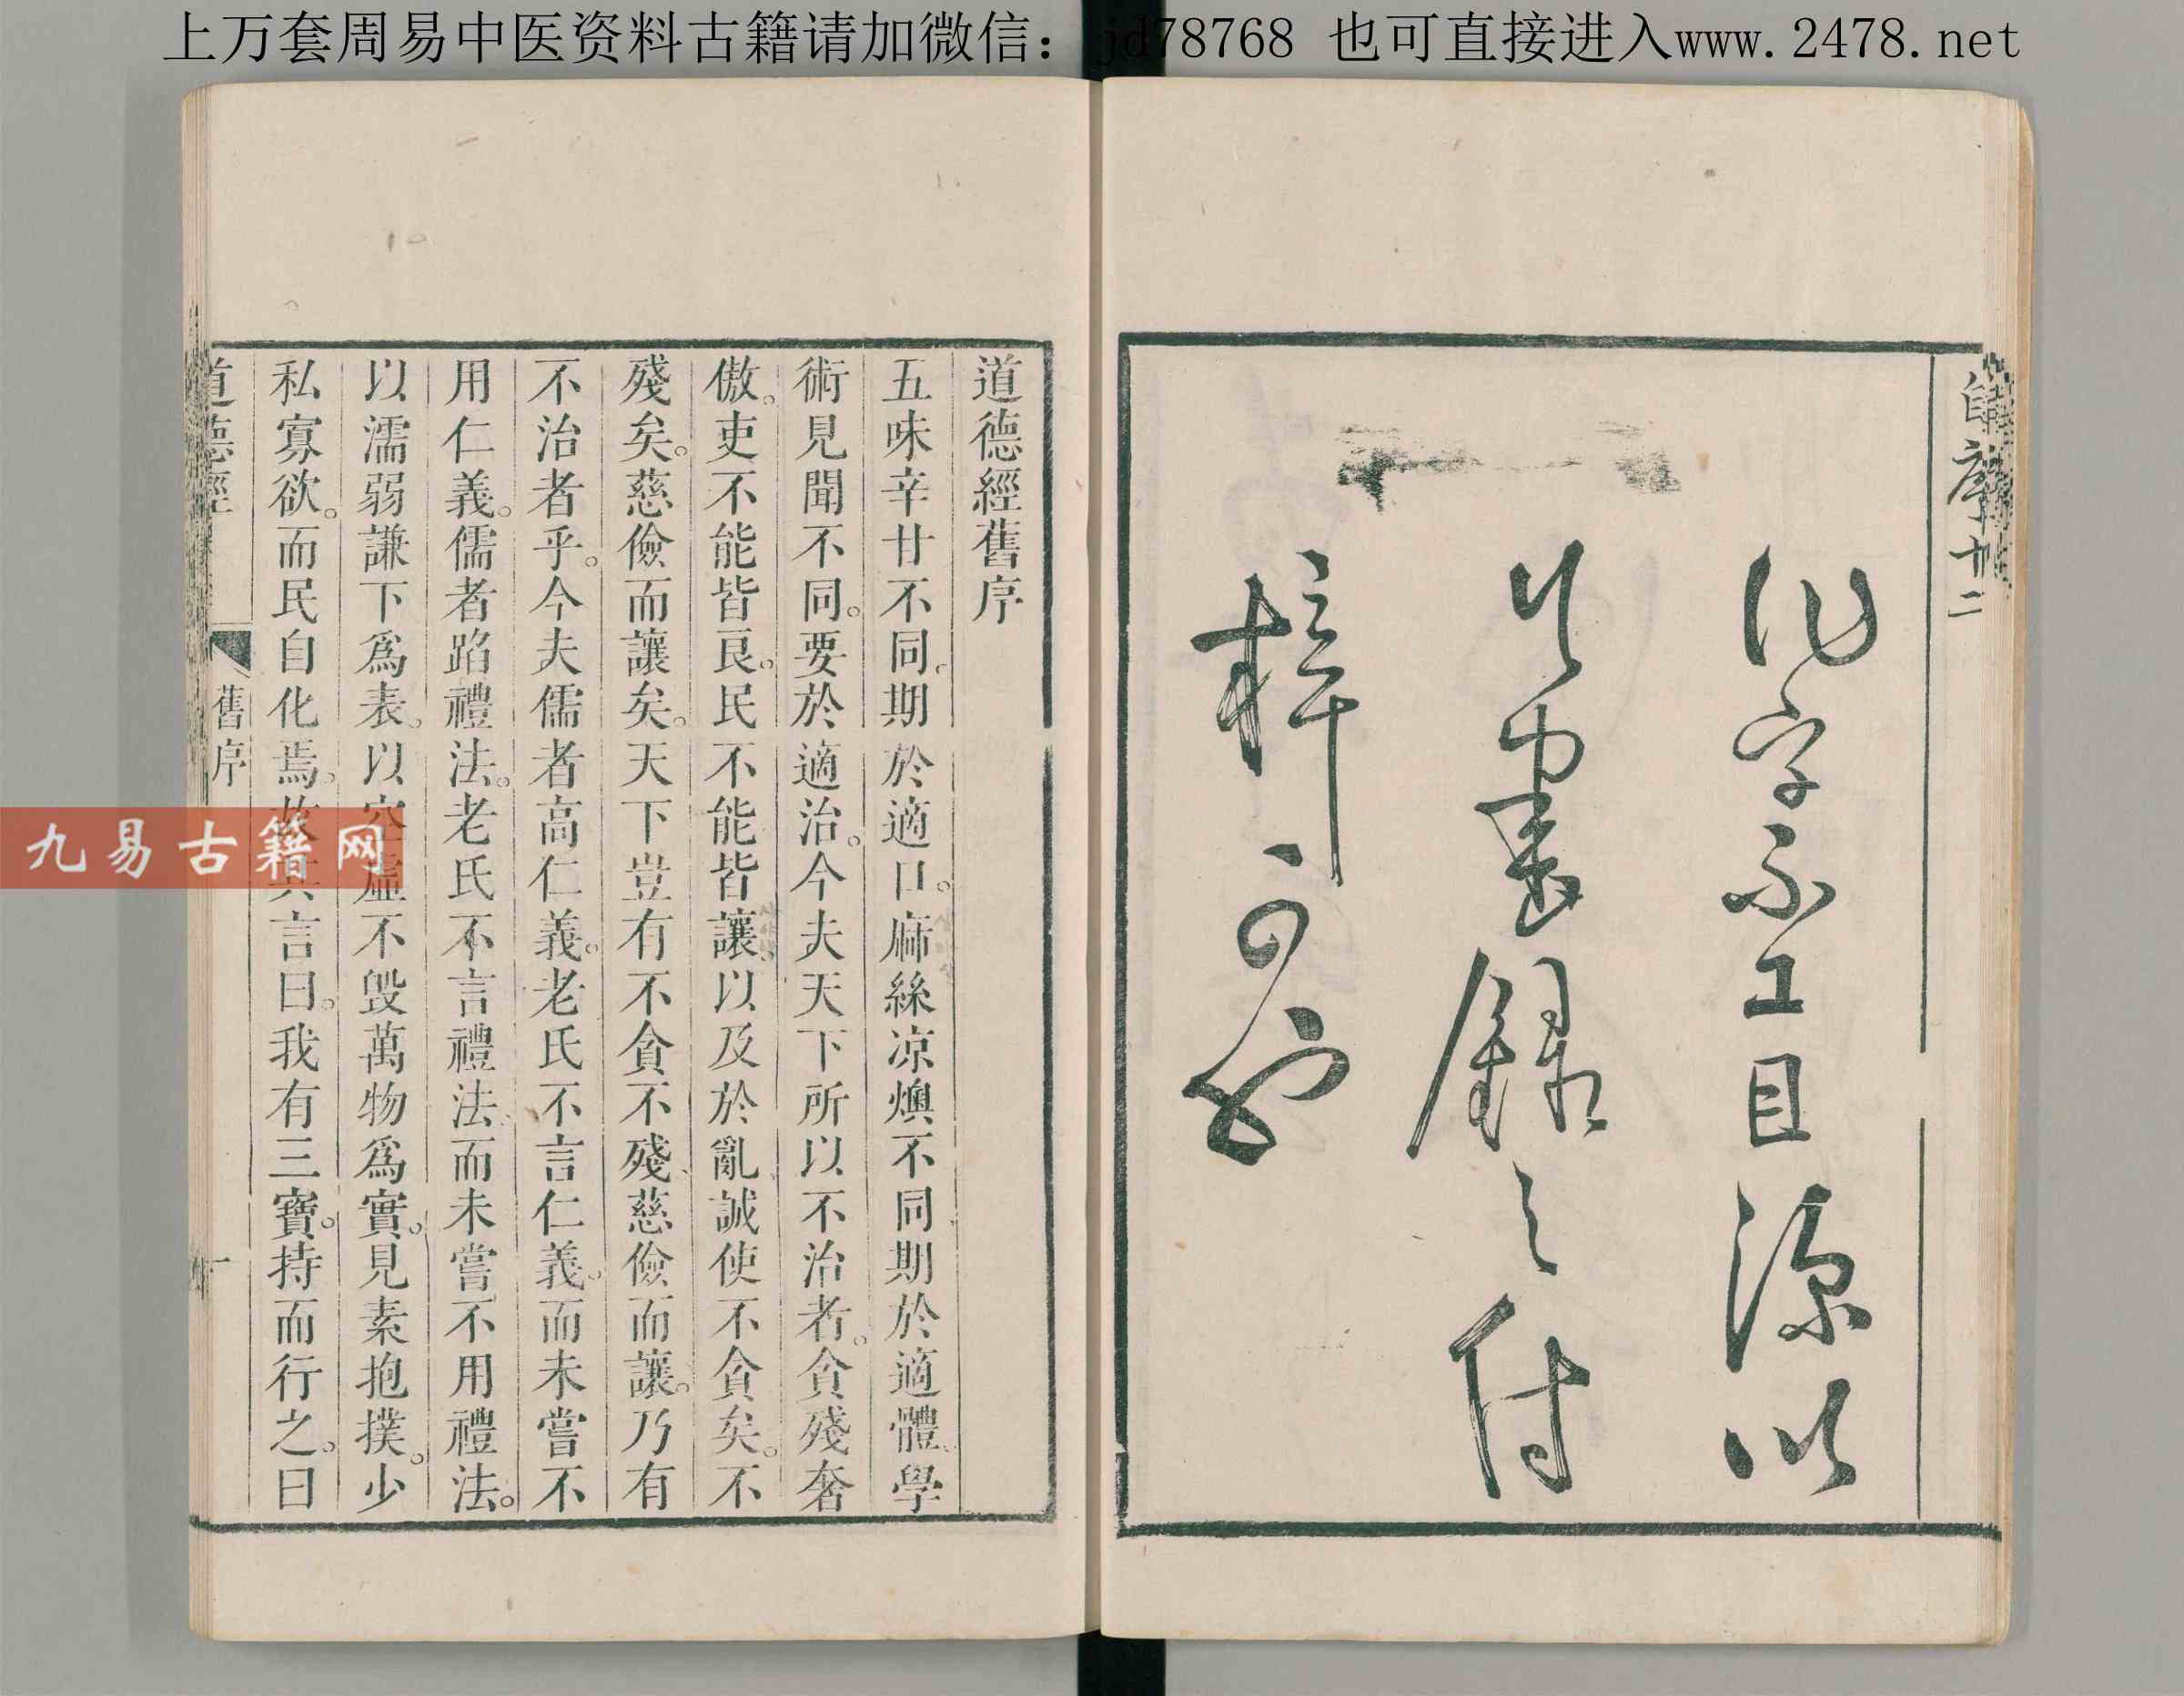 上万套周易中医资料古籍请加微信：jd78768 也可直接进入www.2478.net
自序 十二
字不工目源以
書錄之付
梓可也
道德經舊序
五味辛甘不同。期於適口。麻絲凉燠不同期於適體。學
術見聞不同。要於適治。今夫天下所以不治者。貪殘奢
傲。吏不能皆良。民不能皆讓。以及於亂誠使不貪矣。不
殘矣。慈儉而讓矣。天下豈有不貪不殘、慈儉而讓。乃有
不治者乎。今夫儒者高仁義。老氏不言仁義。而未嘗不
用仁義。儒者蹈禮法。老氏不言禮法、而未嘗不用禮法。
以濡弱謙下爲表。以空虛不毀萬物爲實。見素抱撲。少
私寡欲。而民自化焉。故其言曰。我有三寶。持而行之。曰
道德經 舊序 一
九易古籍网